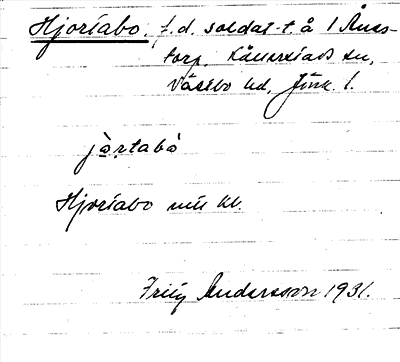 Hjortabo, f.d. soldat-t. å 1 Ånas-
torp, Kållerstads sn,
Västbo hd, Jönk. l.
jo̱rtabò
Hjortabo mtl kl.
Fritz Andersson 1931.